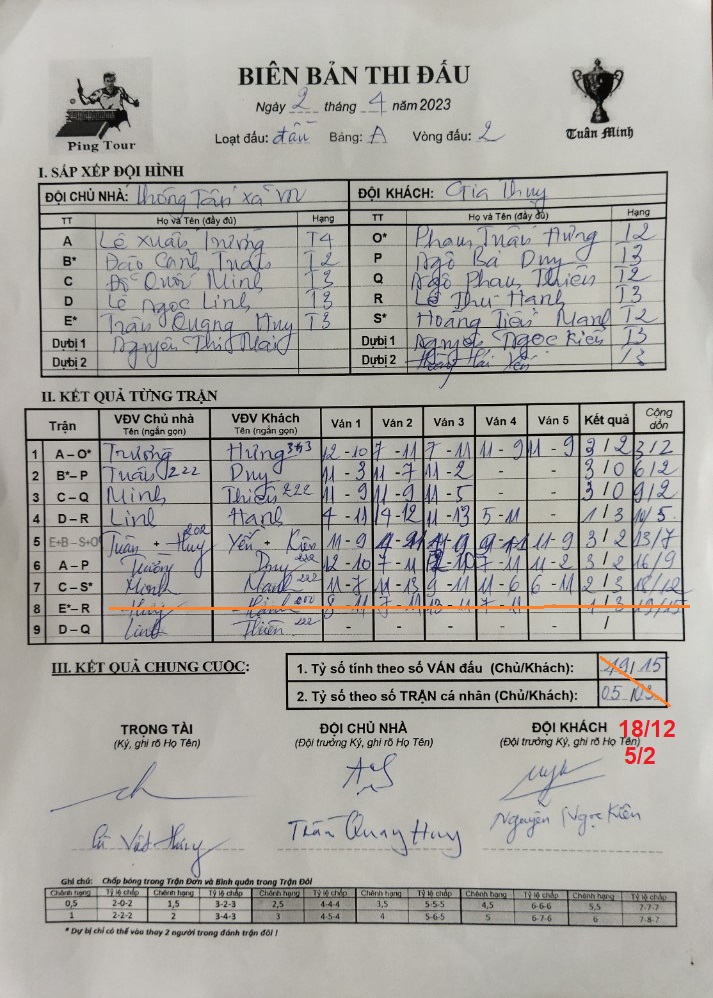 BIÊN BẢN THI ĐẤU
Ngày 2 tháng 4 năm 2023
Ping Tour
Loạt đấu: đấu Bảng: A Vòng đấu: 2
Tuấn Minh
I. SẮP XẾP ĐỘI HÌNH
ĐỘI CHỦ NHÀ: Thông Tấn xã VN ĐỘI KHÁCH: Gia Thụy
TT Họ và Tên (đầy đủ) Hạng TT Họ và Tên (đầy đủ) Hạng
A Lê Xuân Trường T4 O* Phạm Tuấn Hưng T2
B* Đào Cảnh Tuấn T2 P Ngô Bá Duy T3
C Đỗ Quốc Minh T3 Q Ngô Phan Thiên T2
D Lê Ngọc Linh T3 R Lê Thu Hạnh T3
E* Trần Quang Huy T3 S* Hoàng Tiến Mạnh T2
Dự bị 1 Nguyễn Thị Mai Dự bị 1 Nguyễn Ngọc Kiên T3
Dự bị 2 Dự bị 2 Hải Yến 13
II. KẾT QUẢ TỪNG TRẬN
Trận VĐV Chủ nhà Tên (ngắn gọn) VĐV Khách Tên (ngắn gọn) Ván 1 Ván 2 Ván 3 Ván 4 Ván 5 Kết quả Cộng dồn
1 A – O* Trường Hưng 12 - 10 7 - 11 7 - 11 11 - 9 11 - 9 3 / 2 3/2
2 B* – P Tuấn 222 Duy 11 - 3 11 - 7 11 - 2 - - 3 / 0 6/2
3 C – Q Minh Thiên 222 11 - 9 11 - 9 11 - 5 - - 3 / 0 9/2
4 D – R Linh Hạnh 4 - 11 14 - 12 11 - 13 5 - 11 - 1 / 3 10/5
5 E+B – S+O Tuấn + Huy 202 Yến + Kiên 11 - 9 11 - 9 3 / 2 13/7
6 A – P Trường Duy 222 12 - 10 7 - 11 7 - 11 11 - 2 3 / 2 16/9
7 C – S* Minh Mạnh 222 11 - 7 11 - 13 9 - 11 11 - 6 6 - 11 2 / 3 18/12
8 E* – R Huy Hạnh 8 - 11 7 - 11 13 - 11 7 - 11 1 / 3 19/15
9 D – Q Linh Thiên 222 - - - - - /
III. KẾT QUẢ CHUNG CUỘC:
1. Tỷ số tính theo số VÁN đấu (Chủ/Khách): 19/15
2. Tỷ số theo số TRẬN cá nhân (Chủ/Khách): 05/03
18/12
5/2
TRỌNG TÀI ĐỘI CHỦ NHÀ ĐỘI KHÁCH
(Ký, ghi rõ Họ Tên) (Đội trưởng Ký, ghi rõ Họ Tên) (Đội trưởng Ký, ghi rõ Họ Tên)
Trần Quang Huy Nguyễn Ngọc Kiên
Ghi chú: Chấp bóng trong Trận Đơn và Bình quân trong Trận Đôi
Chênh hạng Tỷ lệ chấp Chênh hạng Tỷ lệ chấp Chênh hạng Tỷ lệ chấp Chênh hạng Tỷ lệ chấp Chênh hạng Tỷ lệ chấp Chênh hạng Tỷ lệ chấp
0,5 2-0-2 1,5 3-2-3 2,5 4-4-4 3,5 5-5-5 4,5 6-6-6 5,5 7-7-7
1 2-2-2 2 3-4-3 3 4-5-4 4 5-6-5 5 6-7-6 6 7-8-7
* Dự bị chỉ có thể vào thay 2 người trong đánh trận đôi !